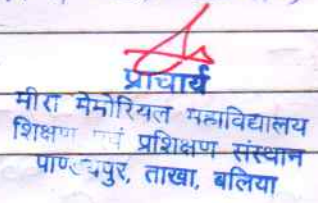 प्राचार्य
मीरा मेमोरियल महाविद्यालय
शिक्षण एवं प्रशिक्षण संस्थान
ताखा, बलिया